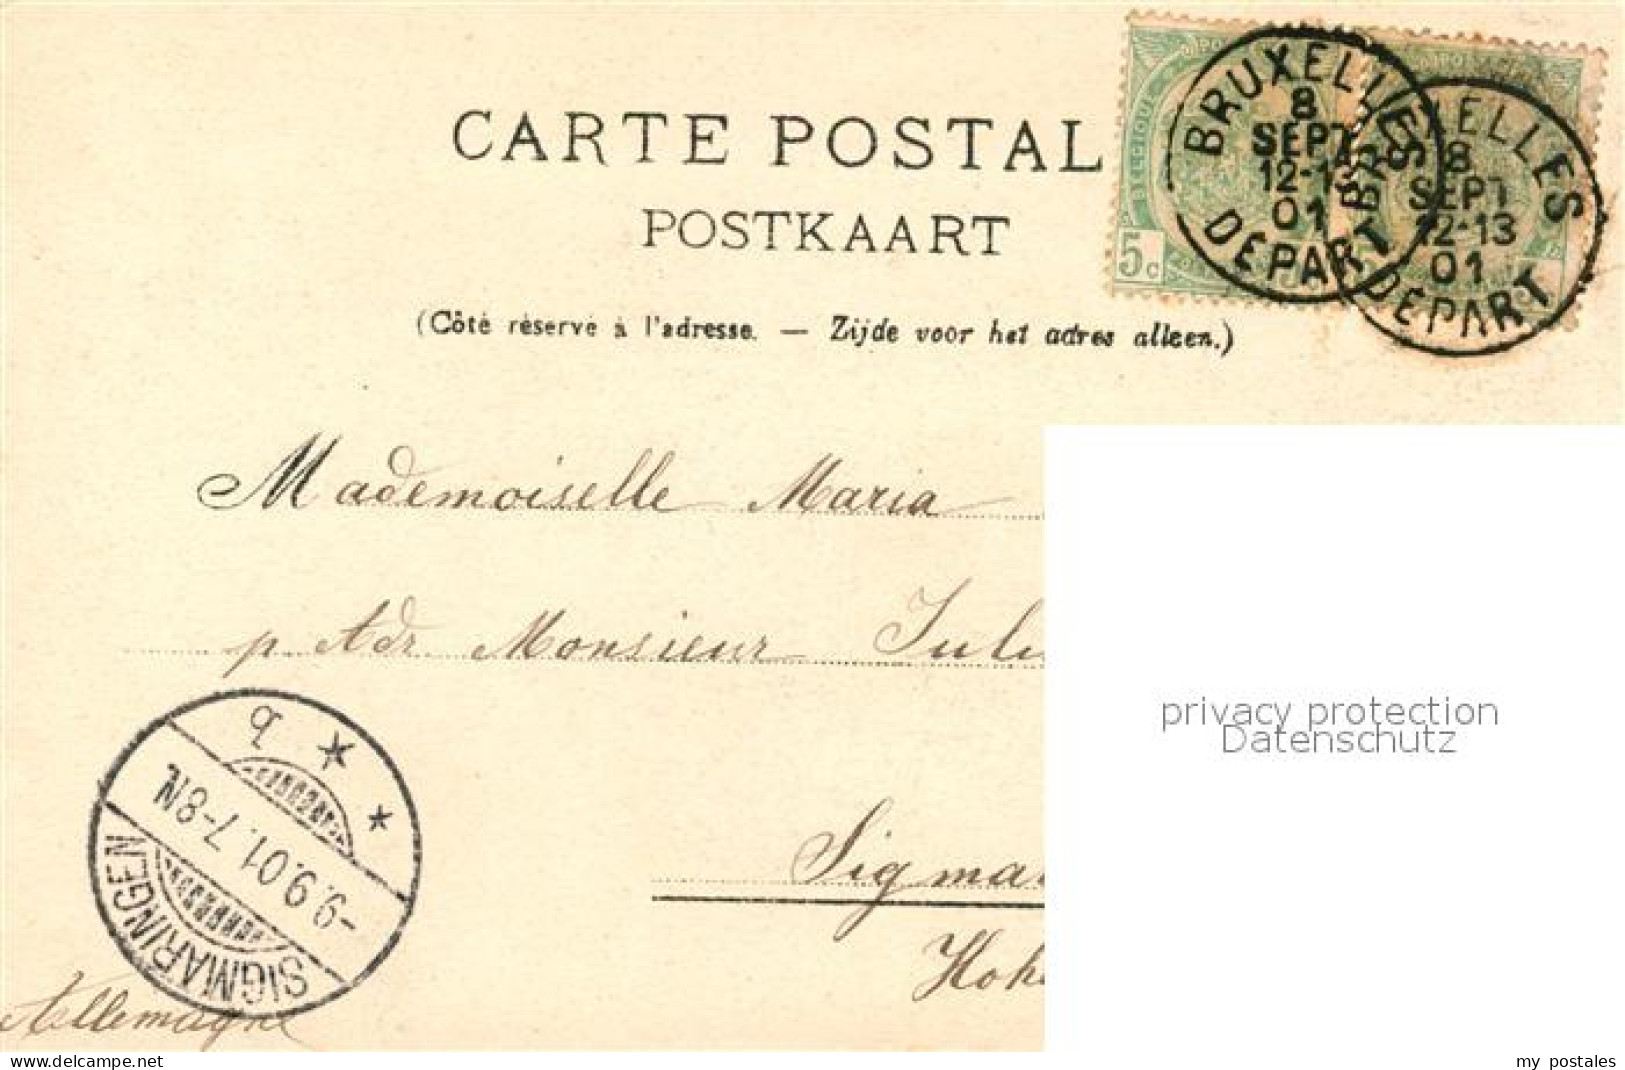 CARTE POSTAL
POSTKAART
(Côté réservé à l'adresse. — Zijde voor het adres alleen.)
BELGIQUE
5c
BRUXELLES
8
SEPT
12-13
01
DÉPART
XELLES
8
SEPT
12-13
01
DÉPART
Mademoiselle Maria
p. Adr. Monsieur
privacy protection
Datenschutz
SIGMARINGEN
-9.9.01.7-8N.
b
Allemagne
www.delcampe.net
my postales